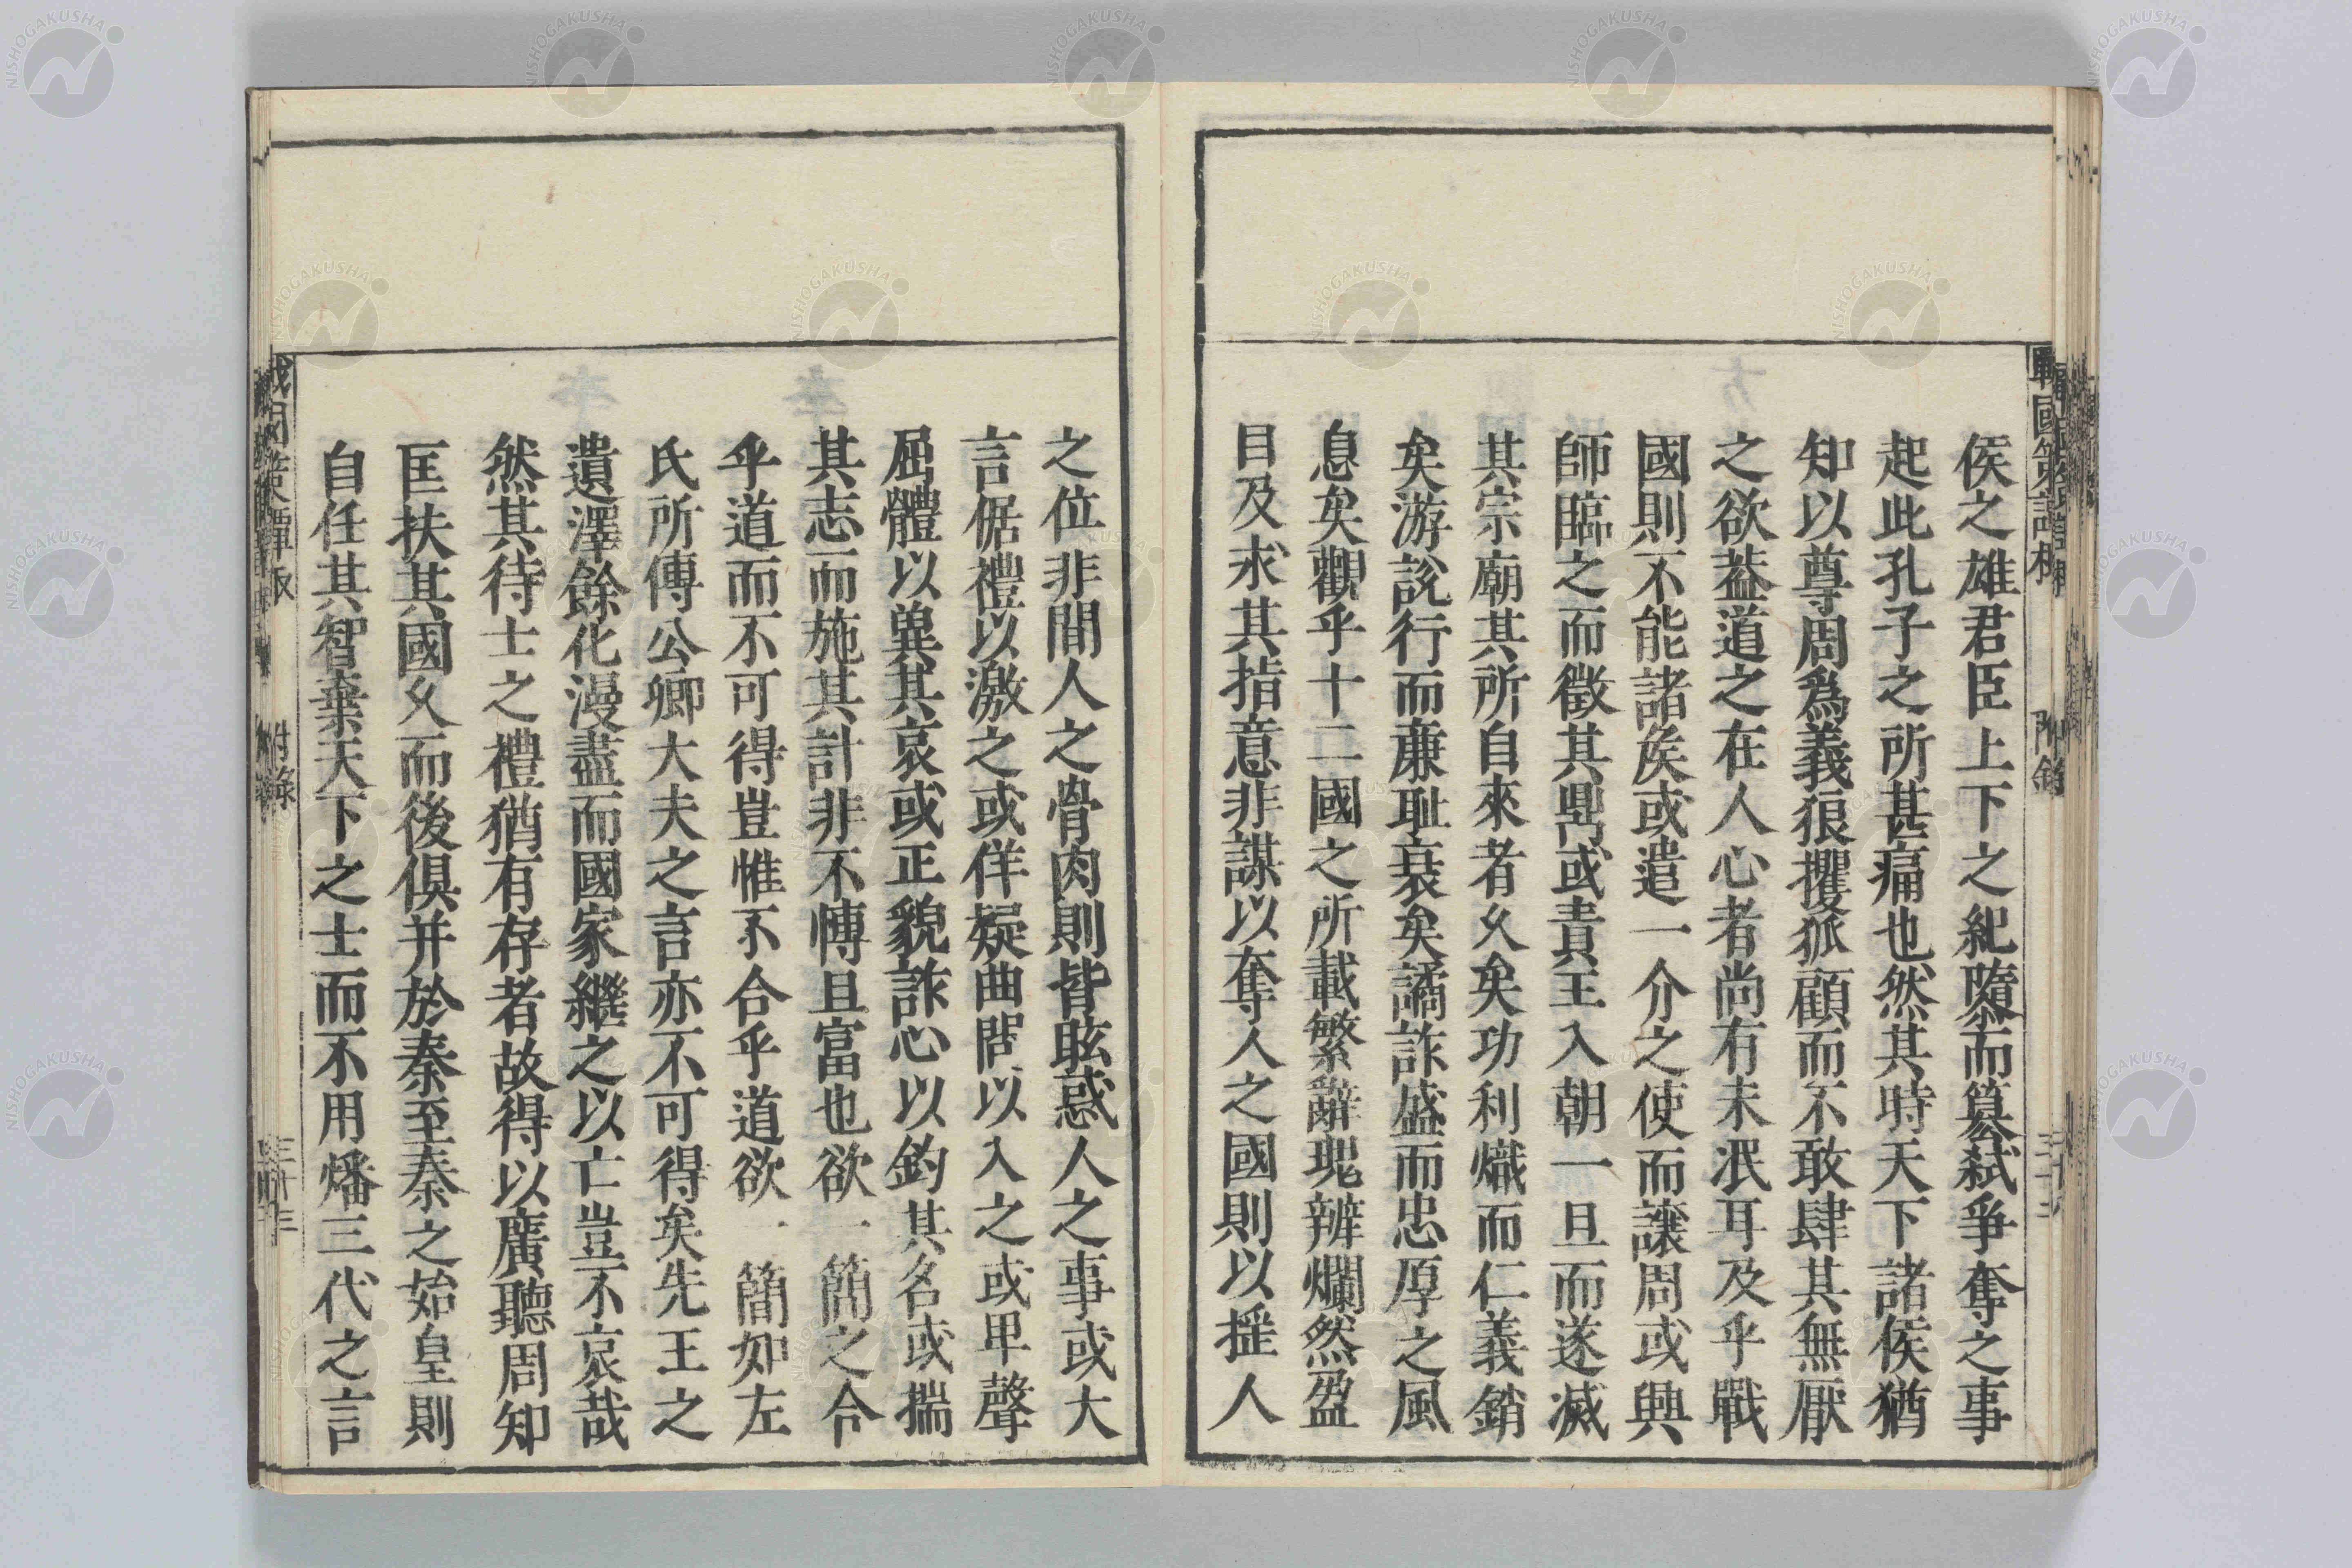 侯之雄君臣上下之紀隳而篡弑爭奪之事
起此孔子之所甚痛也然其時天下諸侯猶
知以尊周爲義狼攫狐顧而不敢肆其無厭
之欲葢道之在人心者尚有未泯耳及乎戰
國則不能諸矦或遣一介之使而讓周或興
師臨之而徵其鼎或責王入朝一旦而遂滅
其宗廟其所自來者久矣功利熾而仁義銷
矣游說行而廉耻衰矣譎詐盛而忠厚之風
息矣觀乎十二國之所載繁辭瑰辨爛然盈
目及求其指意非謀以奪人之國則以摇人
之位非間人之骨肉則皆眩惑人之事或大
言倨禮以激之或佯疑曲問以入之或卑聲
屈體以兾其哀或正貌詐心以釣其名或揣
其志而施其計非不慱且富也欲一簡之合
乎道而不可得豈惟不合乎道欲一簡如左
氏所傳公卿大夫之言亦不可得矣先王之
遺澤餘化漫盡而國家繼之以亡豈不哀哉
然其待士之禮猶有存者故得以廣聽周知
匡扶其國久而後俱并於秦至秦之始皇則
自任其智棄天下之士而不用燔三代之言
戰國策譚棷 附錄 三十三